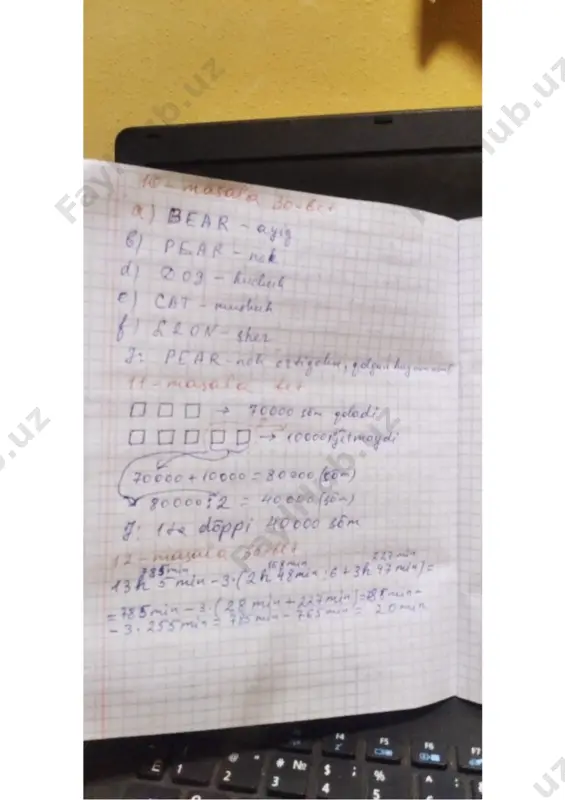 10-masala 30-bet
a) BEAR - ayiq
b) PEAR - nok
d) DOG - kuchuk
e) CAT - mushuk
f) LION - sher
J: PEAR-nok ortiqcha, qolgan hayvonot
11-masala bet
□ □ □ → 70000 so'm qoladi
□ □ □ □ □ → 10000 yetmaydi
70000 + 10000 = 80000 (so'm)
80000 : 2 = 40000 (so'm)
J: 1 ta do'ppi 40000 so'm
12-masala
785min 168min 227min
13h 5min - 3·(2h 48min : 6 + 3h 47min) =
= 785min - 3·(28min + 227min) = 785min -
- 3·255min = 785min - 765min = 20min
FaylHub.uz
F4 F5 F6 F7
E 1 2 3 4 5
" № ; %
@ # $